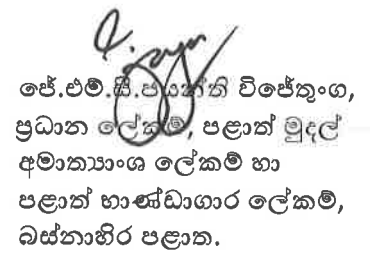 ජේ.එම්.සී.ජයන්ති විජේතුංග,
ප්‍රධාන ලේකම්, පළාත් මුදල්
අමාත්‍යාංශ ලේකම් හා
පළාත් භාණ්ඩාගාර ලේකම්,
බස්නාහිර පළාත.